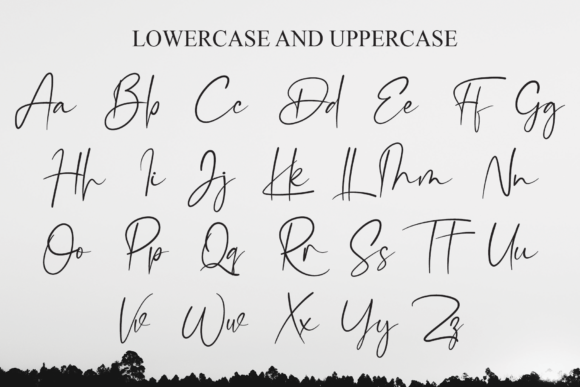 LOWERCASE AND UPPERCASE
Aa Bb Cc Dd Ee Ff Gg
Hh Ii Jj Kk Ll Mm Nn
Oo Pp Qq Rr Ss Tt Uu
Vv Ww Xx Yy Zz